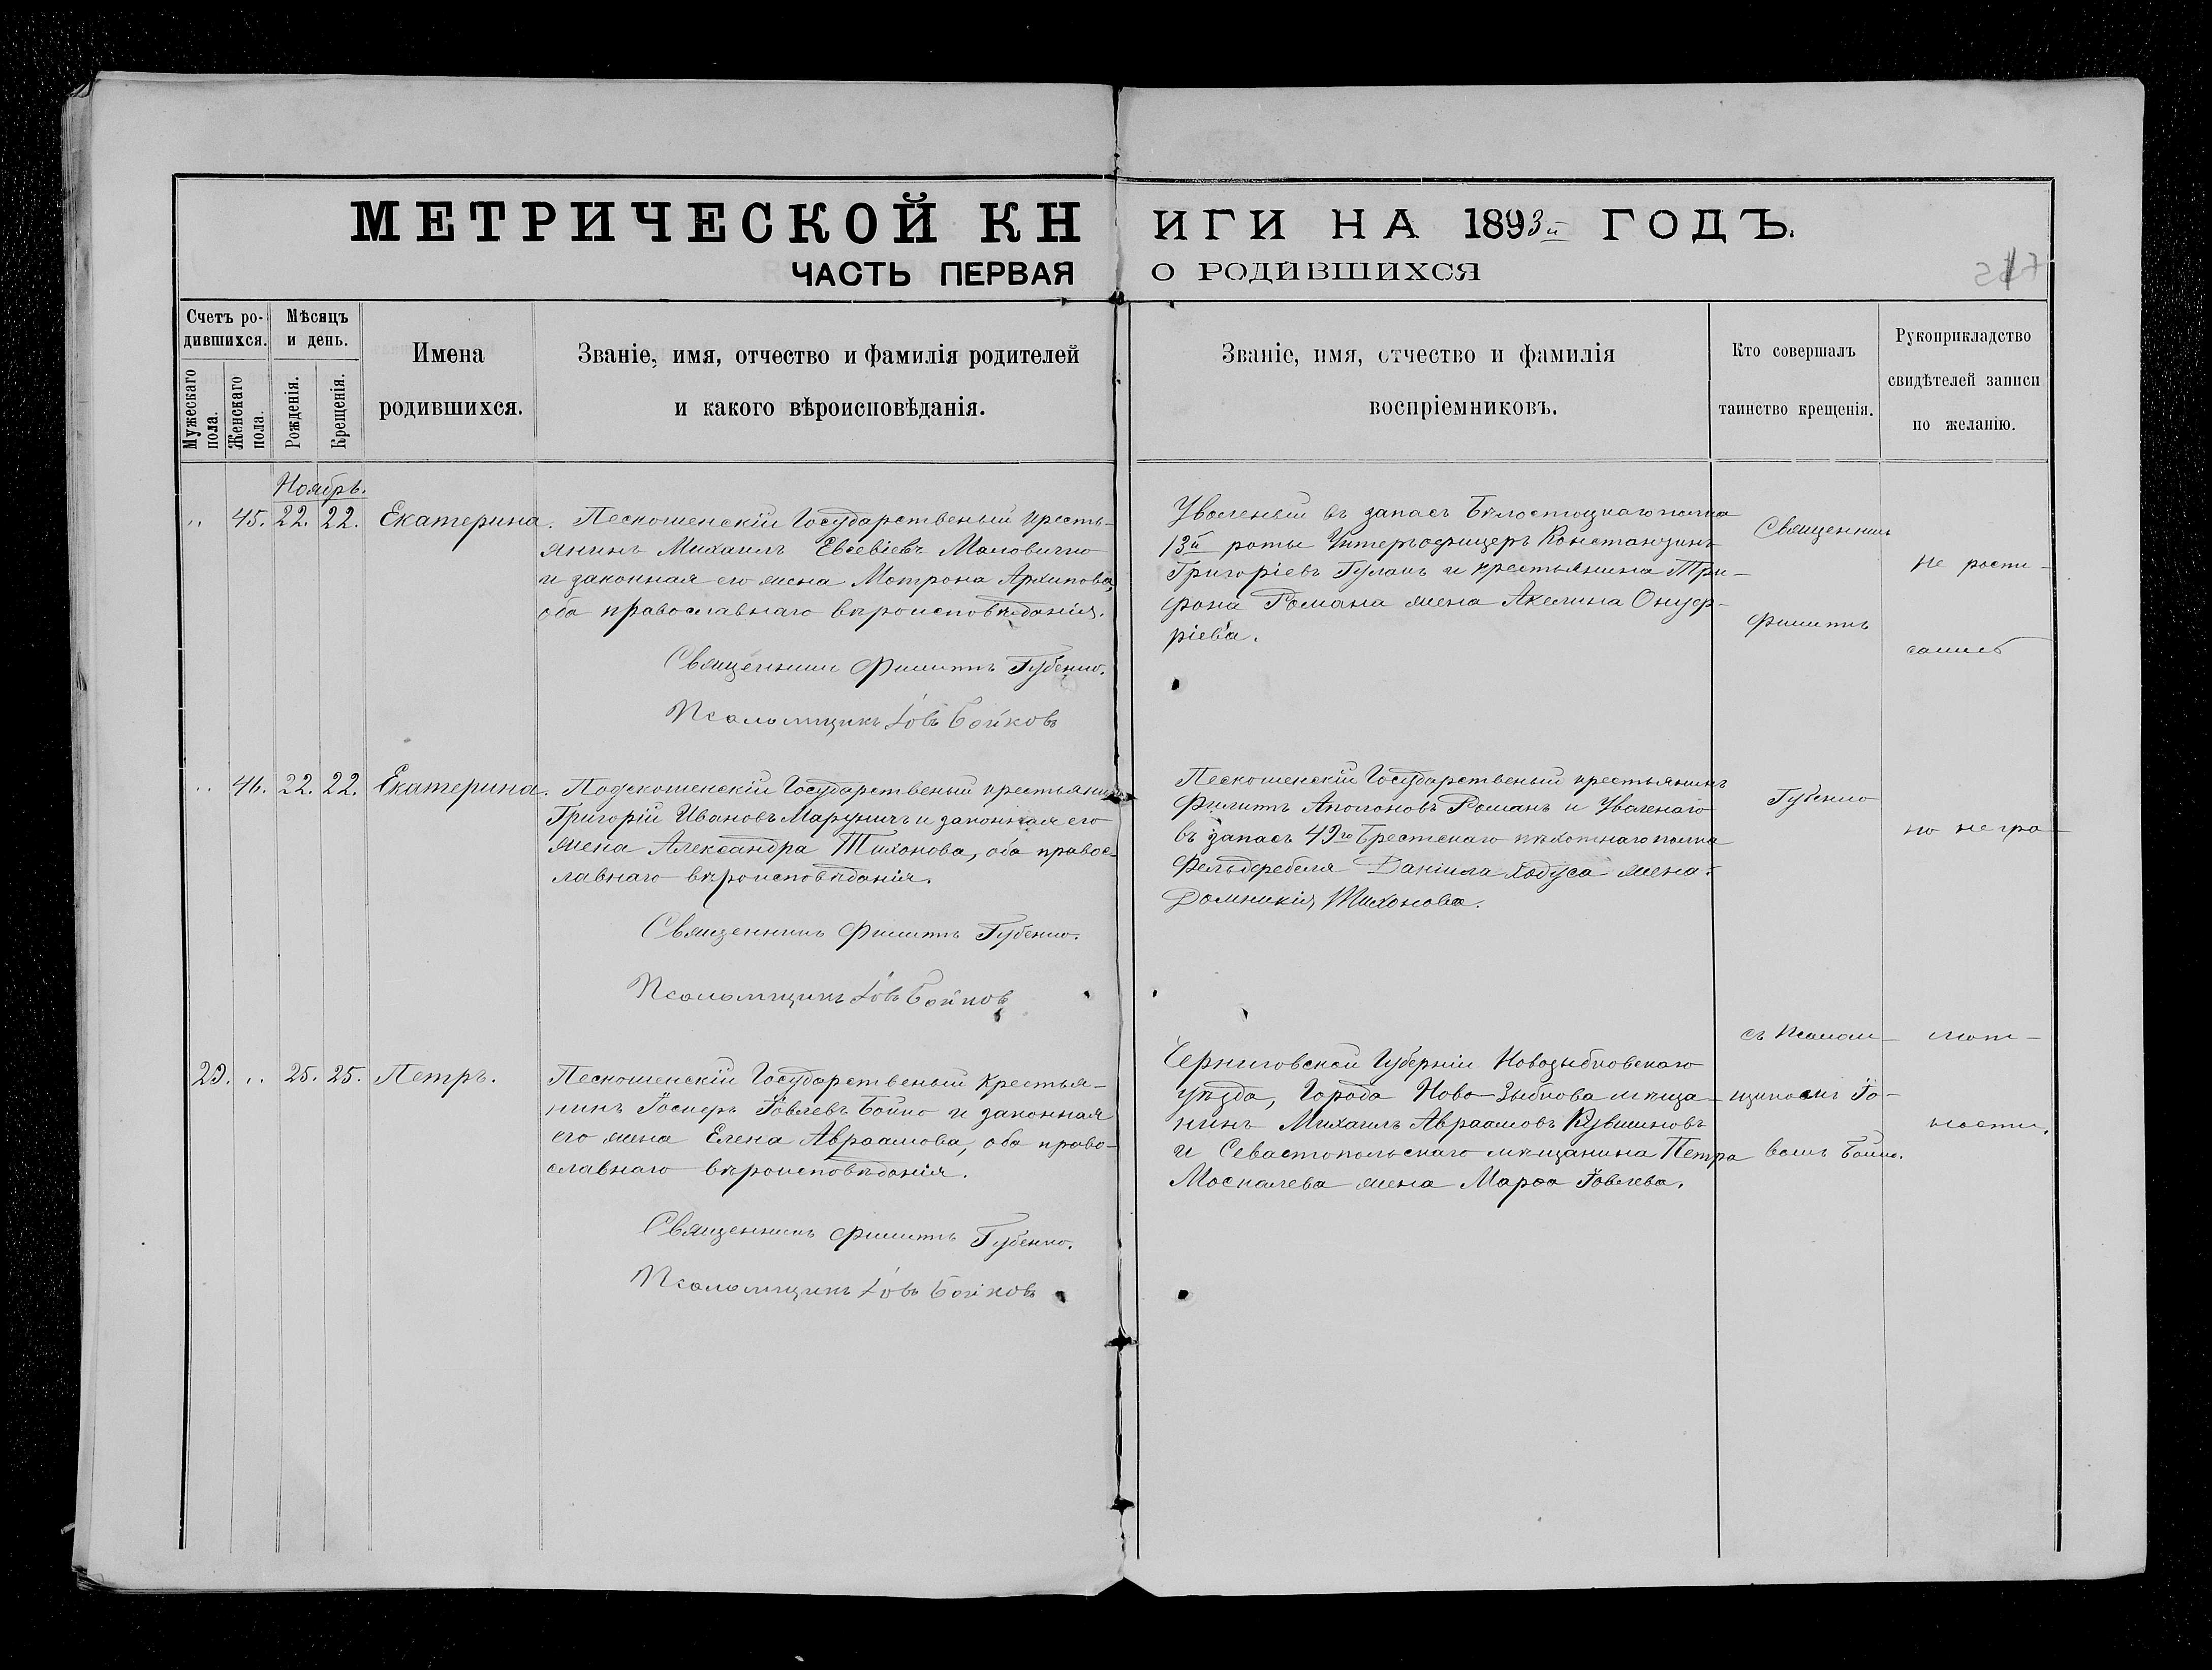 МЕТРИЧЕСКОЙ КНИГИ НА 1893й ГОДЪ.
ЧАСТЬ ПЕРВАЯ О РОДИВШИХСЯ
Счетъ ро-
дившихся.
Мужескаго пола.
Женскаго пола.
Мѣсяцъ
и день.
Рожденія.
Крещенія.
Имена
родившихся.
Званіе, имя, отчество и фамилія родителей
и какого вѣроисповѣданія.
Званіе, имя, отчество и фамилія
воспріемниковъ.
Кто совершалъ
таинство крещенія.
Рукоприкладство
свидѣтелей записи
по желанію.
Ноябрь.
„ 45. 22. 22. Екатерина. Государственый кресть-
янинъ Михаилъ Евсевіевъ
и законная его жена Мотрона Архипова,
оба православнаго вѣроисповѣданія.
Священникъ Филиппъ Губенко.
Псаломщикъ Іовъ Бойковъ
Уволеный въ запасъ Бѣлостоцкаго полка
13й роты Унтерофицеръ Константинъ
Григоріевъ и крестьянина Три-
фона Романа жена Акелина Онуф-
ріева.
Священникъ
Филиппъ
Не роспи-
сались
„ 46. 22. 22. Екатерина. Государственый крестьянинъ
Григорій Ивановъ и законная его
жена Александра Тихонова, оба правос-
лавнаго вѣроисповѣданія.
Священникъ Филиппъ Губенко.
Псаломщикъ Іовъ Бойковъ
Государственый крестьянинъ
Филиппъ Романъ и Уволенаго
въ запасъ 49го Брестскаго пѣхотнаго полка
Фельдфебеля Даніила Ходуса жена
Домникія Тихонова.
Губенко
по негра-
29. „ 25. 25. Петръ. Государственый Крестья-
нинъ Іосифъ Іовлевъ Бойко и законная
его жена Елена Авраамова, оба право-
славнаго вѣроисповѣданія.
Священникъ Филиппъ Губенко.
Псаломщикъ Іовъ Бойковъ
Черниговской Губерніи Новозыбковскаго
уѣзда, Города Ново-Зыбкова мѣща-
нинъ Михаилъ Авраамовъ Кувшиновъ
и Севастопольскаго мѣщанина Петра
Москалева жена Марѳа Іовлева.
съ Псалом-
щикомъ Іо-
вомъ Бойко.
мот-
ности.